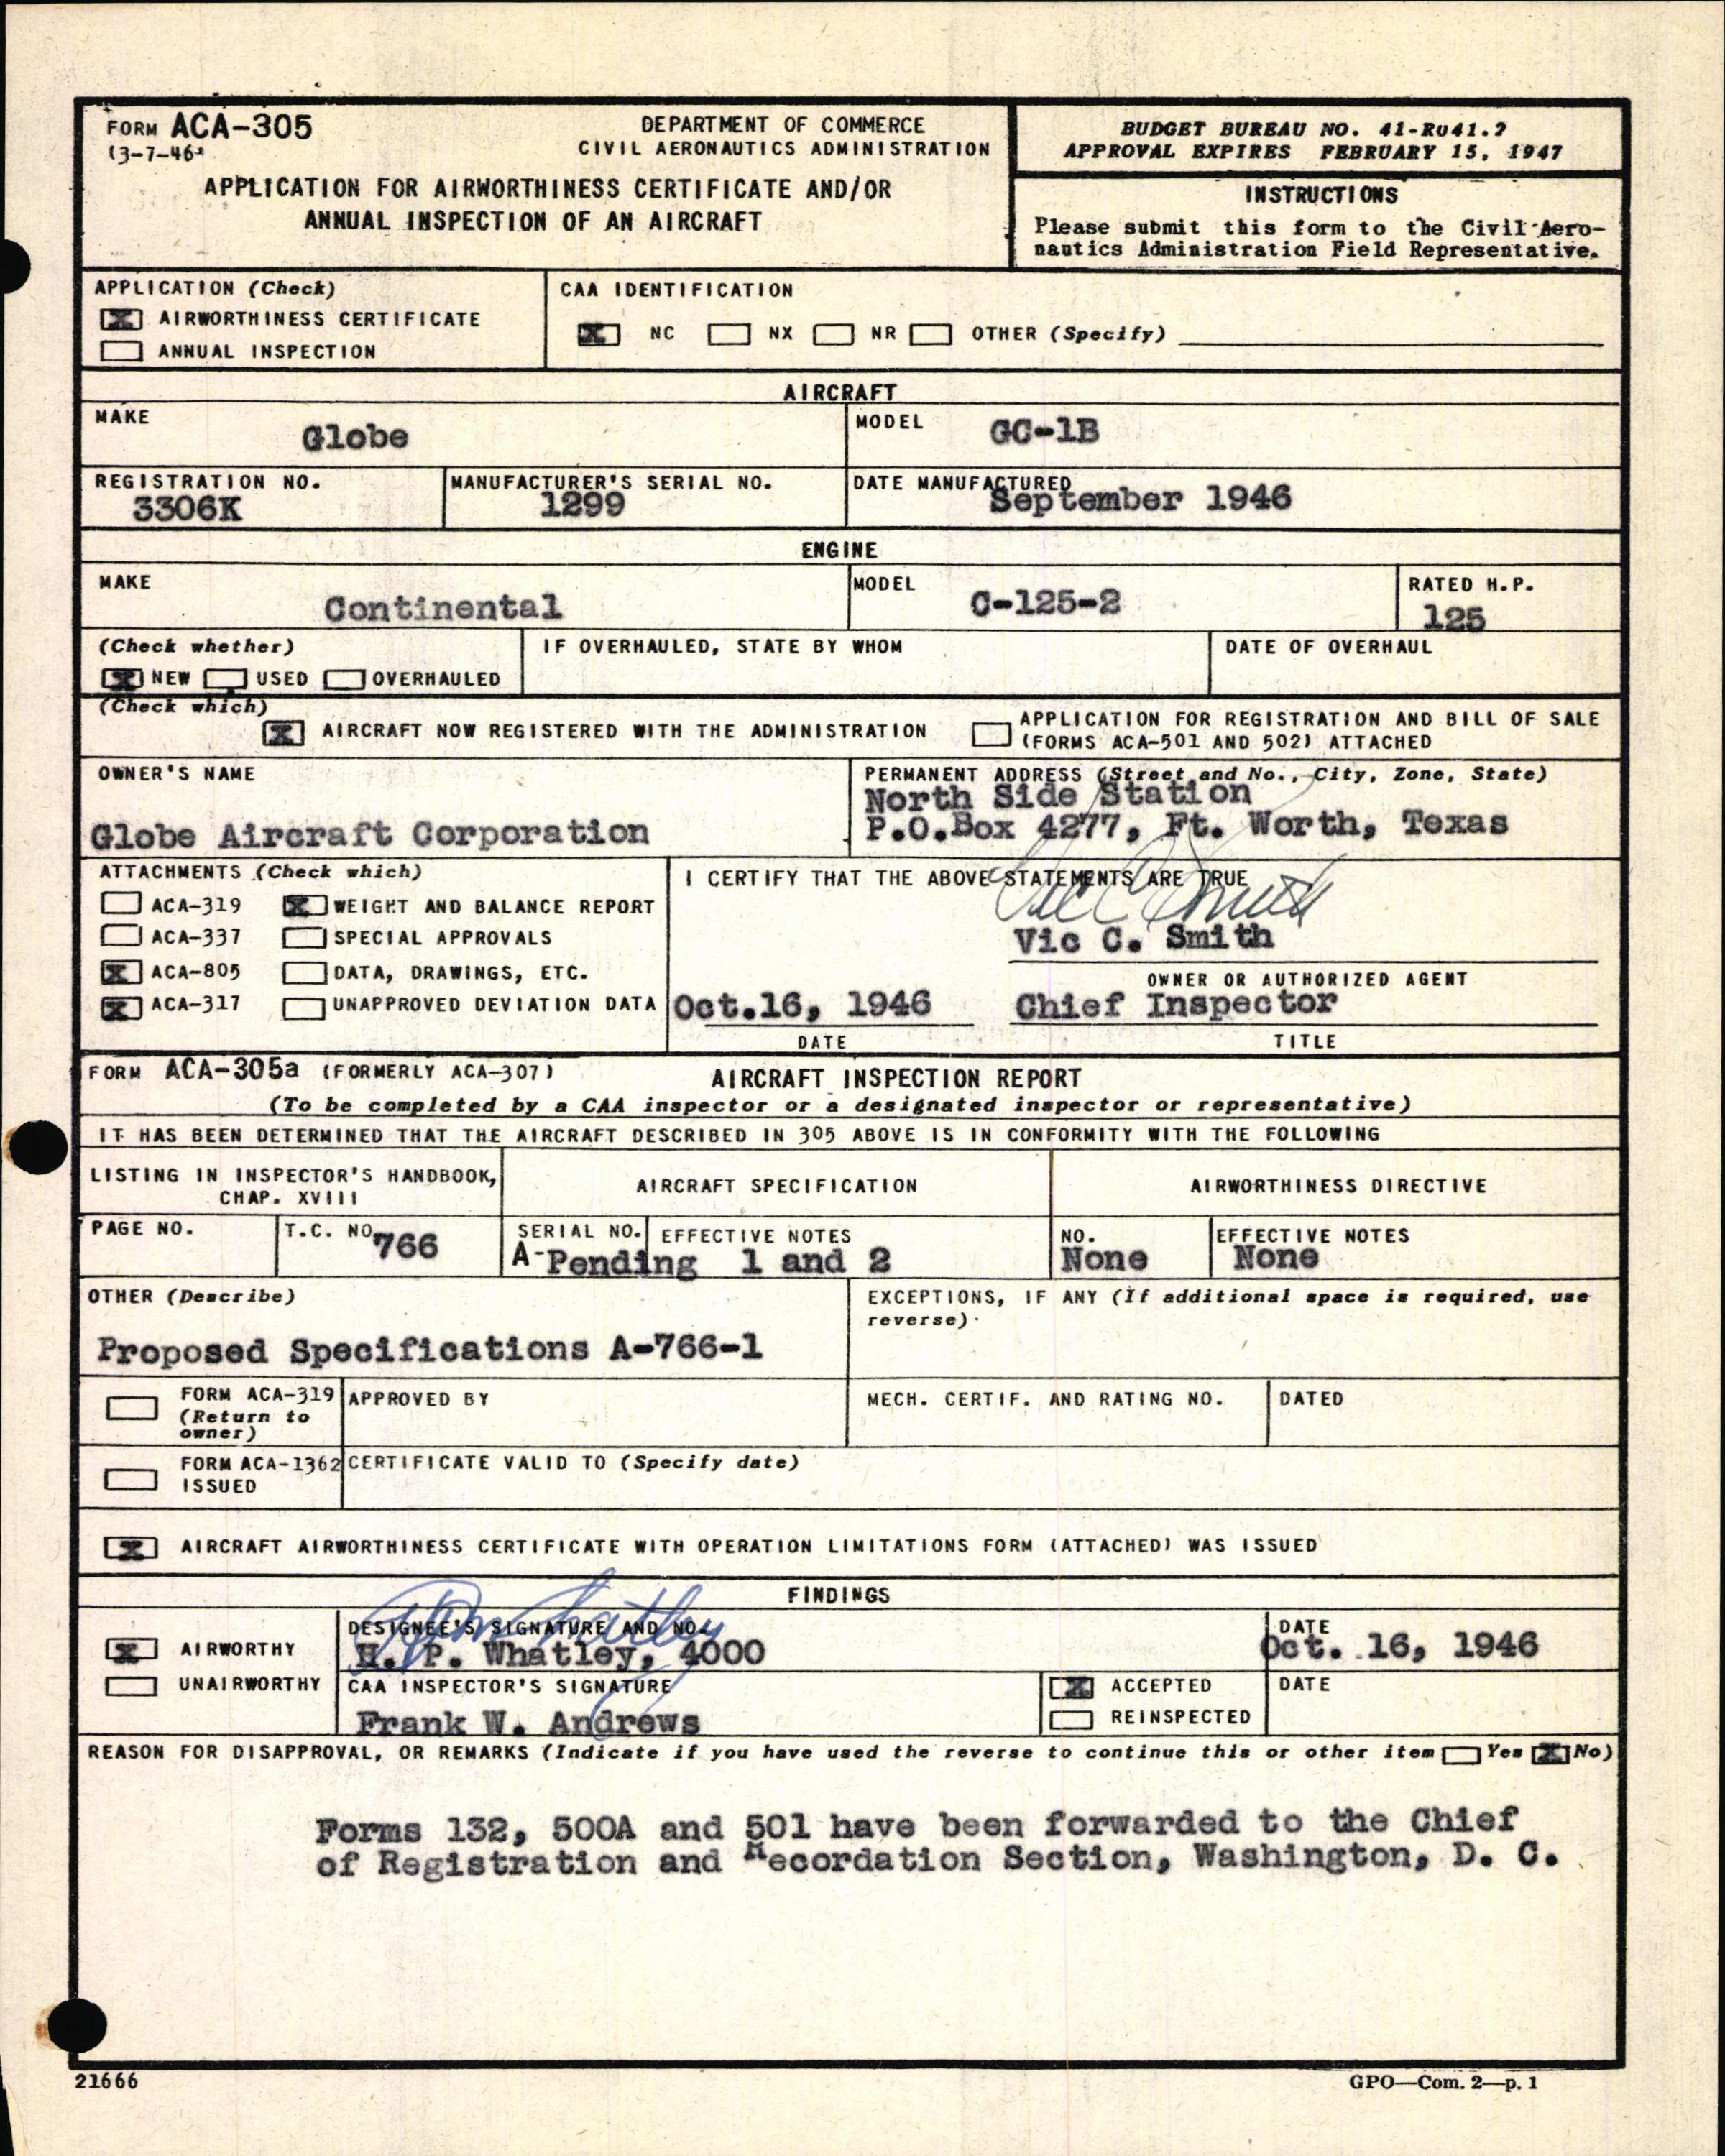 FORM ACA-305
(3-7-46)
DEPARTMENT OF COMMERCE
CIVIL AERONAUTICS ADMINISTRATION
APPLICATION FOR AIRWORTHINESS CERTIFICATE AND/OR
ANNUAL INSPECTION OF AN AIRCRAFT
BUDGET BUREAU NO. 41-R041.2
APPROVAL EXPIRES FEBRUARY 15, 1947
INSTRUCTIONS
Please submit this form to the Civil Aero-
nautics Administration Field Representative.
APPLICATION (Check)
X AIRWORTHINESS CERTIFICATE
ANNUAL INSPECTION
CAA IDENTIFICATION
X NC NX NR OTHER (Specify)
AIRCRAFT
MAKE
Globe
MODEL
GC-1B
REGISTRATION NO.
3306K
MANUFACTURER'S SERIAL NO.
1299
DATE MANUFACTURED
September 1946
ENGINE
MAKE
Continental
MODEL
C-125-2
RATED H.P.
125
(Check whether)
X NEW USED OVERHAULED
IF OVERHAULED, STATE BY WHOM
DATE OF OVERHAUL
(Check which)
X AIRCRAFT NOW REGISTERED WITH THE ADMINISTRATION
APPLICATION FOR REGISTRATION AND BILL OF SALE
(FORMS ACA-501 AND 502) ATTACHED
OWNER'S NAME
Globe Aircraft Corporation
PERMANENT ADDRESS (Street and No., City, Zone, State)
North Side Station
P.O.Box 4277, Ft. Worth, Texas
ATTACHMENTS (Check which)
ACA-319 X WEIGHT AND BALANCE REPORT
ACA-337 SPECIAL APPROVALS
X ACA-805 DATA, DRAWINGS, ETC.
X ACA-317 UNAPPROVED DEVIATION DATA
I CERTIFY THAT THE ABOVE STATEMENTS ARE TRUE
Vic C Smith
Vic C. Smith
OWNER OR AUTHORIZED AGENT
Oct.16, 1946 Chief Inspector
DATE TITLE
FORM ACA-305a (FORMERLY ACA-307) AIRCRAFT INSPECTION REPORT
(To be completed by a CAA inspector or a designated inspector or representative)
IT HAS BEEN DETERMINED THAT THE AIRCRAFT DESCRIBED IN 305 ABOVE IS IN CONFORMITY WITH THE FOLLOWING
LISTING IN INSPECTOR'S HANDBOOK,
CHAP. XVIII
AIRCRAFT SPECIFICATION
AIRWORTHINESS DIRECTIVE
PAGE NO.
T.C. NO. 766
SERIAL NO. EFFECTIVE NOTES
A- Pending 1 and 2
NO.
None
EFFECTIVE NOTES
None
OTHER (Describe)
Proposed Specifications A-766-1
EXCEPTIONS, IF ANY (If additional space is required, use
reverse).
FORM ACA-319
(Return to
owner)
APPROVED BY
MECH. CERTIF. AND RATING NO.
DATED
FORM ACA-1362
ISSUED
CERTIFICATE VALID TO (Specify date)
X AIRCRAFT AIRWORTHINESS CERTIFICATE WITH OPERATION LIMITATIONS FORM (ATTACHED) WAS ISSUED
FINDINGS
X AIRWORTHY
UNAIRWORTHY
DESIGNEE'S SIGNATURE AND NO.
HP Whatley
H. P. Whatley, 4000
DATE
Oct. 16, 1946
CAA INSPECTOR'S SIGNATURE
Frank W. Andrews
X ACCEPTED
REINSPECTED
DATE
REASON FOR DISAPPROVAL, OR REMARKS (Indicate if you have used the reverse to continue this or other item Yes X No)
Forms 132, 500A and 501 have been forwarded to the Chief
of Registration and Recordation Section, Washington, D. C.
21666
GPO—Com. 2—p. 1